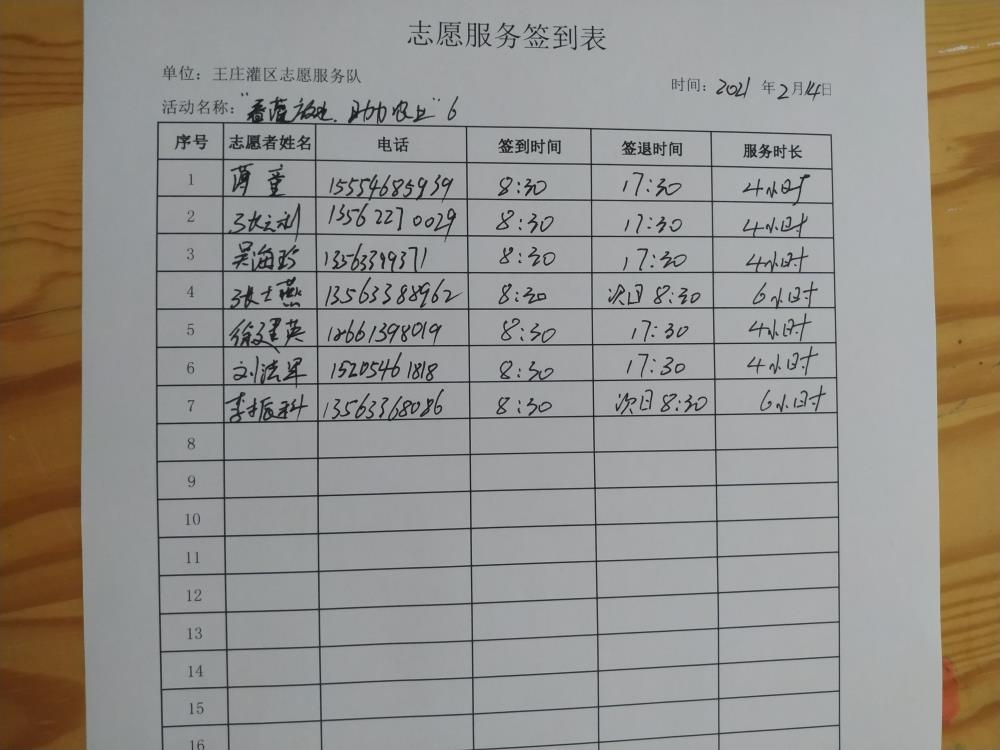 志愿服务签到表
单位：王庄灌区志愿服务队
时间：2021年2月14日
活动名称："春灌放水、助力农业"6
序号 志愿者姓名 电话 签到时间 签退时间 服务时长
1 童 15554685939 8:30 17:30 4小时
2 张立利 13562270029 8:30 17:30 4小时
3 吴海珍 13563399371 8:30 17:30 4小时
4 张士燕 13563388962 8:30 次日8:30 6小时
5 徐建英 18661398019 8:30 17:30 4小时
6 刘法军 15205461818 8:30 17:30 4小时
7 李振科 13563368086 8:30 次日8:30 6小时
8
9
10
11
12
13
14
15
16